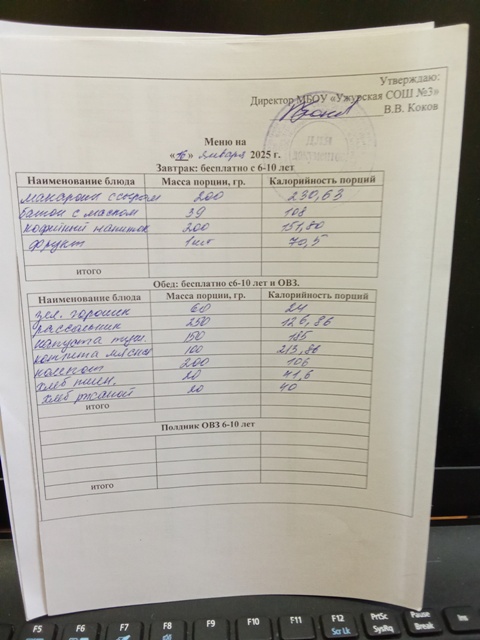 Утверждаю:
Директор МБОУ «Ужурская СОШ №3»
В.В. Коков
для
документов
Меню на
«16» января 2025 г.
Завтрак: бесплатно с 6-10 лет
Наименование блюда Масса порции, гр. Калорийность порций
макароны с сыром 200 230,63
батон с маслом 39 108
кофейный напиток 200 151,80
фрукт 1 шт 70,5
итого
Обед: бесплатно с6-10 лет и ОВЗ.
Наименование блюда Масса порции, гр. Калорийность порций
зел. горошек 60 24
рассольник 250 126,86
капуста туш. 150 185
котлета мясная 100 213,86
компот 200 106
хлеб пшен. 20 71,6
хлеб ржаной 20 40
итого
Полдник ОВЗ 6-10 лет
итого
F5 F6 F7 F8 F9 F10 F11 F12 PrtSc Pause Ins
Scr Lk SysRq Break